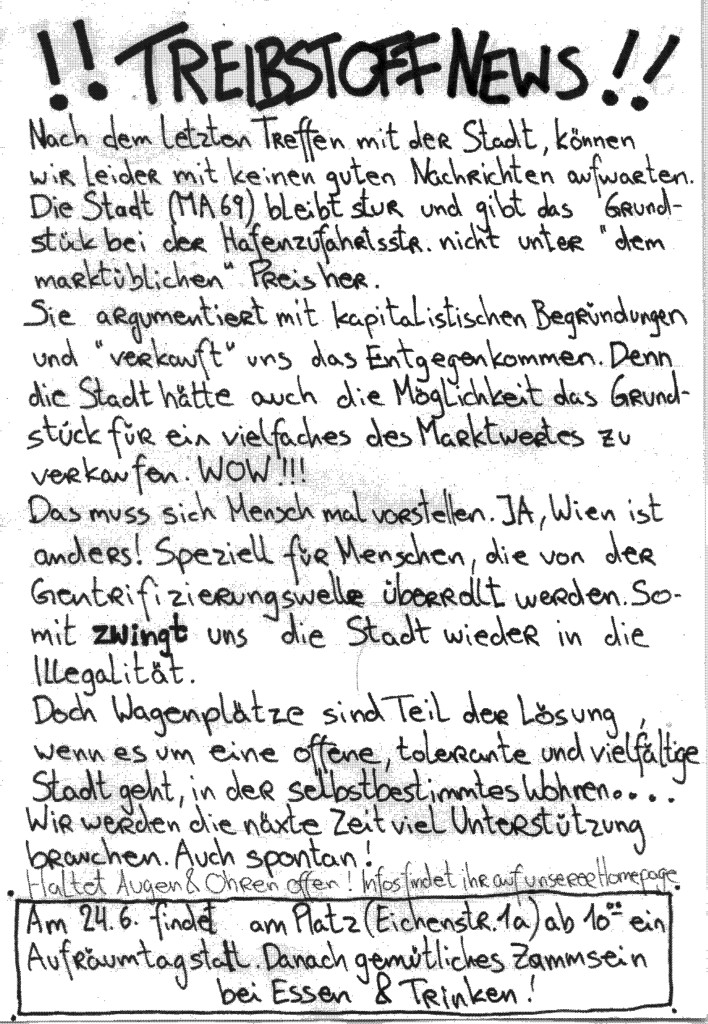 !! TREIBSTOFF NEWS !!
Nach dem letzten Treffen mit der Stadt, können
wir leider mit keinen guten Nachrichten aufwarten.
Die Stadt (MA 69) bleibt stur und gibt das Grund-
stück bei der Hafenzufahrtsstr. nicht unter "dem
marktüblichen" Preis her.
Sie argumentiert mit kapitalistischen Begründungen
und "verkauft" uns das Entgegenkommen. Denn
die Stadt hätte auch die Möglichkeit das Grund-
stück für ein vielfaches des Marktwertes zu
verkaufen. WOW!!!
Das muss sich Mensch mal vorstellen. JA, Wien ist
anders! Speziell für Menschen, die von der
Gentrifizierungswelle überrollt werden. So-
mit zwingt uns die Stadt wieder in die
Illegalität.
Doch Wagenplätze sind Teil der Lösung,
wenn es um eine offene, tolerante und vielfältige
Stadt geht, in der selbstbestimmtes Wohnen....
Wir werden die näxte Zeit viel Unterstützung
brauchen. Auch spontan!
Haltet Augen & Ohren offen! Infos findet ihr auf unserer Homepage.
Am 24.6. findet am Platz (Eichenstr. 1a) ab 10⁰⁰ ein
Aufräumtag statt. Danach gemütliches Zammsein
bei Essen & Trinken!